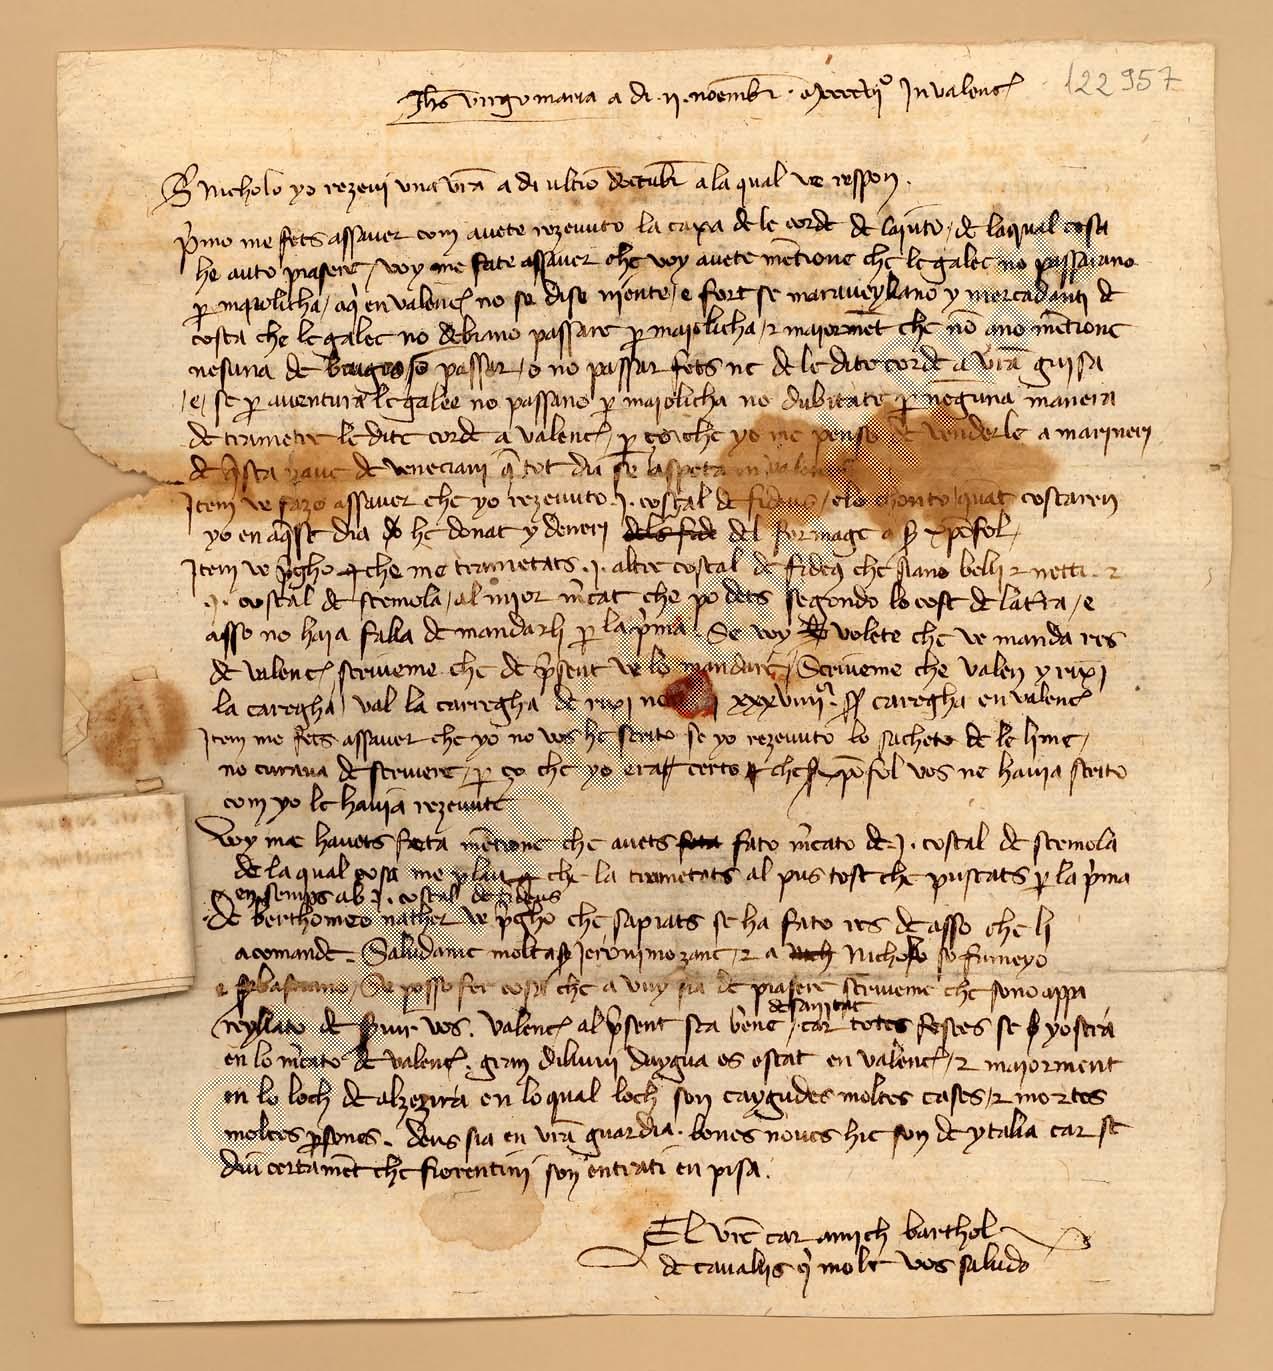 Jhs virgo maria a di .ij. noembr. mccccvjº In valenc
122957
Sr Nicholo yo rezevi una vra a di ultio doctubr a la qual ve respon.
prmo me fets assaver com avete rezevuto la caxa de le corde de lauto, de la qual cosa
he auto piasere, voy me fate assaver che voy avete mētione che le galee no passarano
per maiolicha, aq en valenc no se dise niente, e fort se maraveylano y mercadanti de
costa che le galee no debiano passare per maiolicha, & maiormēt che nō ano mētione
nesuna de passar, o no passar fets ne de le dite corde a vra guisa
, e, se per aventura le galee no passano per maiolicha no dubitate per neguna manera
de trametre le dite corde a valenc, per ço che yo me penso de venderle a marineri
de qsta nave de veneciani q tot dia se laspeta in valenc
Item ve fazo assaver che yo rezevuto .j. costal de fideus, e lo conto quāt costaren
yo en aqst dia he donat y deneri dels fide del formage a sr xpofol,
Item ve pgho che me trametats .j. altre costal de fideus che siano belli & netti. &
.j. costal de semola, al mior mcat che podets segondo lo cost de latra, e
asso no haia falla de mandarli per la pma. Se voy volete che ve manda res
de valenc scriveme che de psent ve lo mandare, Scriveme che valen y rixi
la caregha, val la carregha de rixi xxxviiij caregha en valenc
Item me fets assaver che yo no vos he scrito se yo rezevuto lo sacheto de le lime,
no curava de scrivere, per ço che yo era certo che sr xpofol vos ne havia scrito
com yo le havia rezevute
voy me havets feta mētione che avets feta fato mcato de .j. costal de semola
de la qual cosa me plau che la trametats al pus tost che puscats per la pma
ensemps ab .j. costal de fideus
De berthomeo nather ve pgho che sapiats se ha fato res de asso che li
acomande. Saludame molta sr Jeronimo zane, & a Nich Nicholo so fumeyo
& sr bastiano, Se posso fer cosa che a vuy sia de piasere scriveme che sono appa
reyllato de servir vos. valenc al psent sta bene, de sanitat car totes festes se yostra
en lo mcato de valenc. gran diluvi daygua es estat en valenc, & maiorment
in lo loch de alzezira en lo qual loch son caygudes moltes cases, & mortes
moltes psones. deus sia en vra guardia. bones noves hic son de ytalia car se
diu certamēt che fiorentini son entrati en pisa.
El vre car amich barthol
de cavallis q molt vos saludo